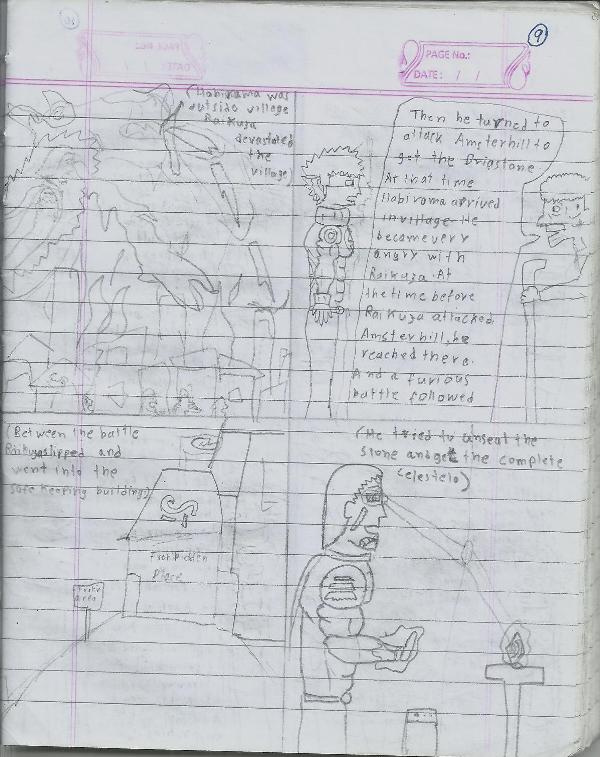 9
PAGE No.:
DATE: / /
(Habirama was
outside village
Raikuza
devastated
the
village)
Then he turned to
attack Amsterhill to
get the Origstone
At that time
Habiroma arrived
in village. He
became very
angry with
Raikuza. At
the time before
Raikuza attacked
Amsterhill, he
reached there.
And a furious
battle followed
(Between the battle
Raikuza slipped and
went into the
safe keeping building)
Forbidden
Place
area
(He tried to unseat the
stone and get the complete
Celestelo)